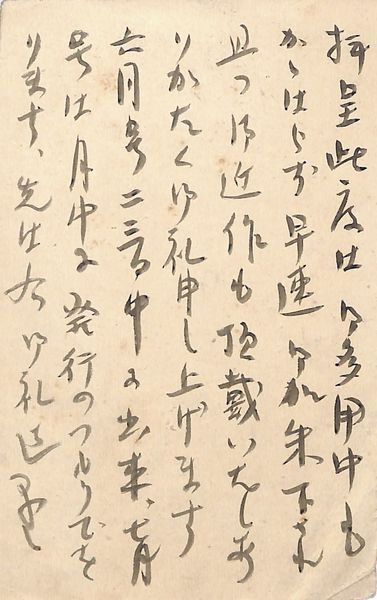 拝呈此度は御多用中も
かゝはらず早速御加朱下され
且つ御近作も頂戴いたしあ
りがたく御礼申し上げます
六月号二三日中に出来、七月
号は月中に発行のつもりでを
ります、先は右御礼迄 早々